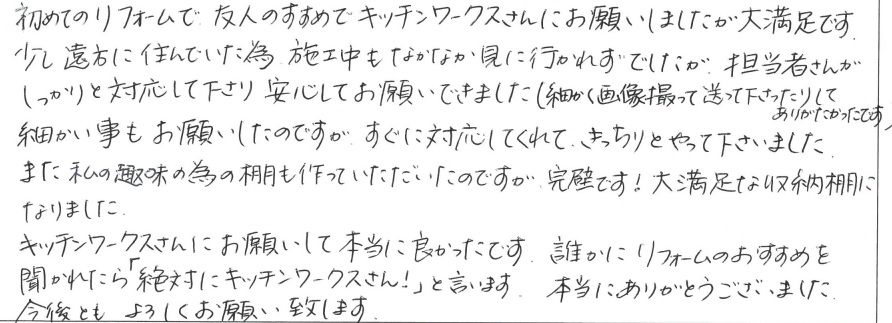 初めてのリフォームで 友人のすすめで キッチンワークスさんにお願いしましたが 大満足です。
少し遠方に住んでいた為、施工中もなかなか見に行かれずでしたが、担当者さんが
しっかりと対応して下さり 安心してお願いできました(細かく画像撮って送って下さったりして
ありがたかったです)
細かい事もお願いしたのですが、すぐに対応してくれて、きっちりとやって下さいました。
また 私の趣味の為の棚も作っていただいたのですが 完璧です! 大満足な収納棚に
なりました。
キッチンワークスさんにお願いして本当に良かったです。 誰かにリフォームのおすすめを
聞かれたら「絶対にキッチンワークスさん!」と言います。 本当にありがとうございました。
今後とも よろしくお願い致します。